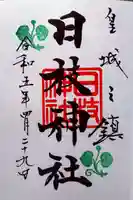 皇城之鎮
日枝神社
令和五年四月二十九日